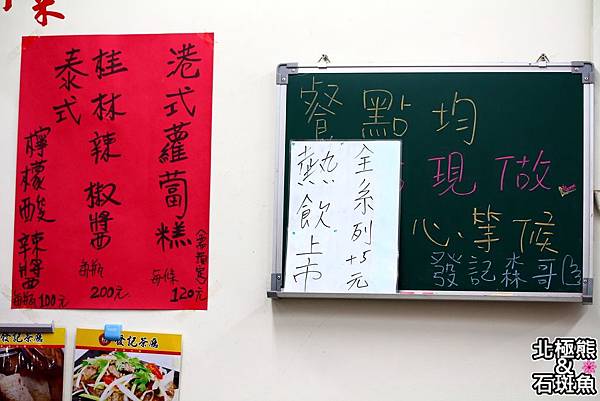 港式蘿蔔糕
每條 120元
桂林辣椒醬
每瓶 200元
泰式
檸檬酸辣醬
每瓶 100元
餐點均
現做
心等候
發記森哥
全系列+5元
熱飲上市
發記茶廳
北極熊
&
石斑魚